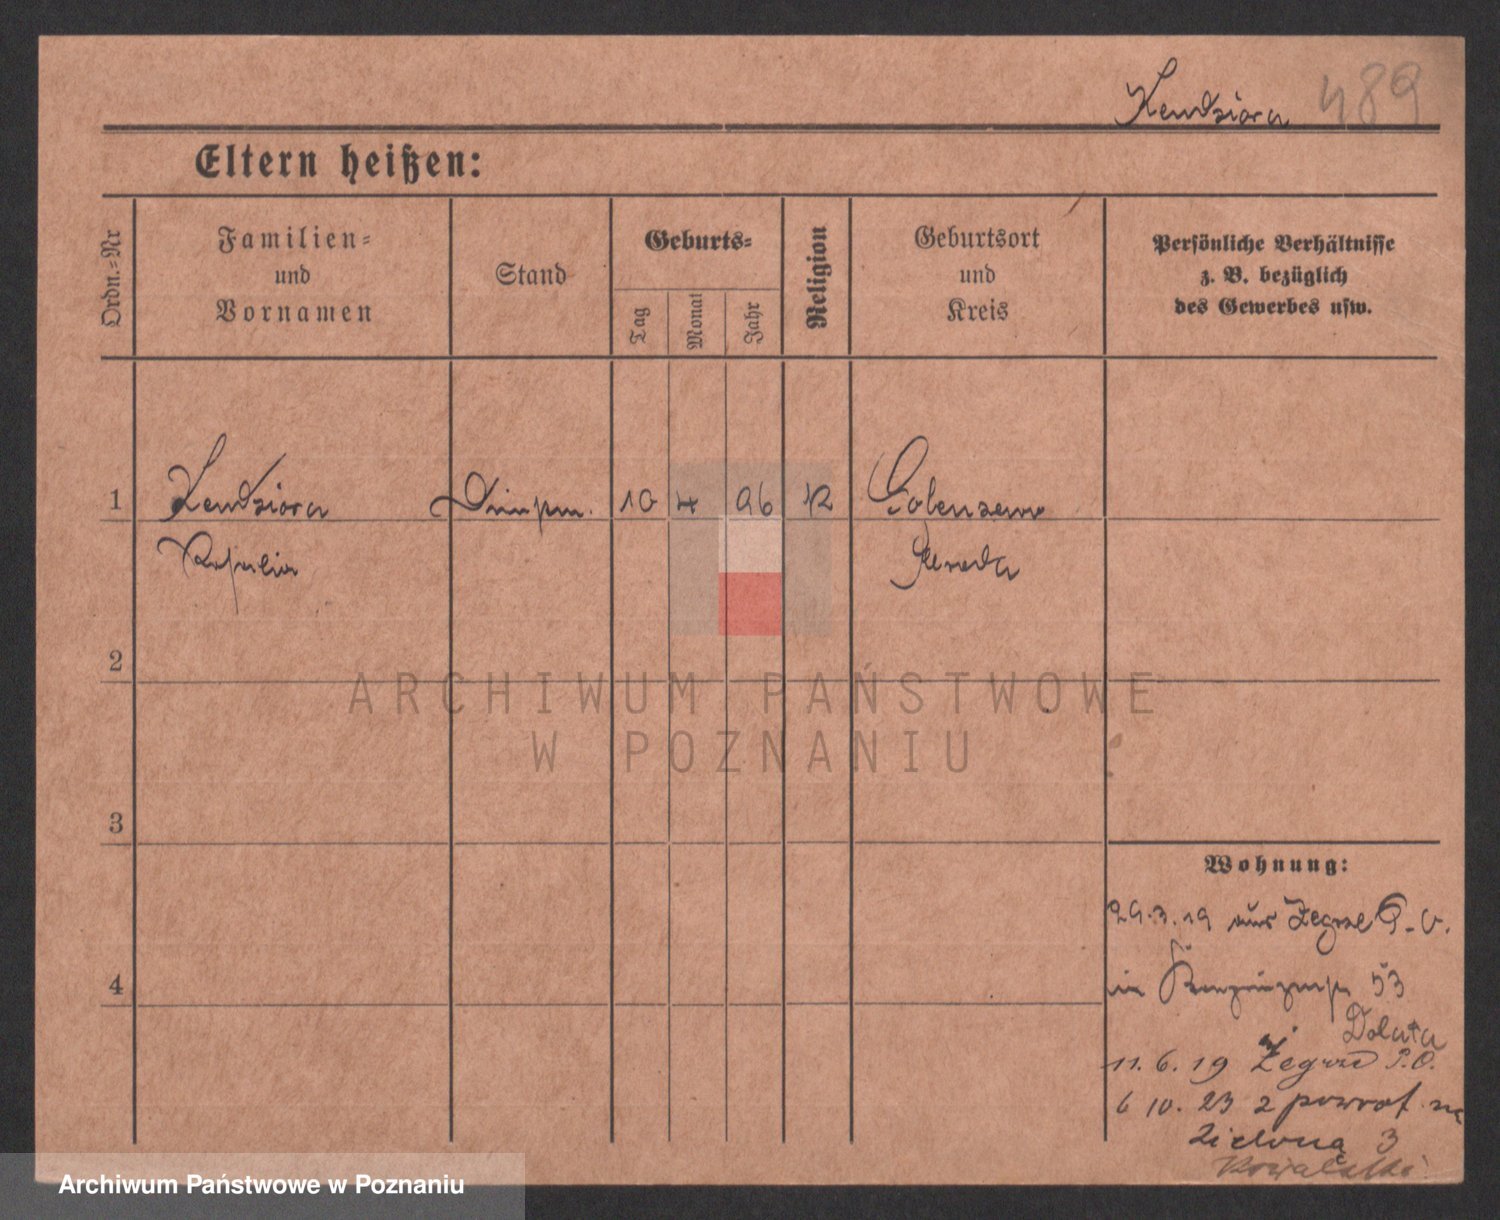 Kendziora 489
Eltern heißen:
Ordn.-Nr
Familien-
und
Vornamen
Stand
Geburts-
Tag
Monat
Jahr
Religion
Geburtsort
und
Kreis
Persönliche Verhältnisse
z. B. bezüglich
des Gewerbes usw.
1 Kendziora 10 4 96 K
2
ARCHIWUM PAŃSTWOWE
W POZNANIU
3
Wohnung:
29.3.19 aus Zegrze
4
53
Dolata
11. 6. 19 Żegrze P.O.
6 10. 23 z powrot na
Zieloną 3
Kowalski
Archiwum Państwowe w Poznaniu